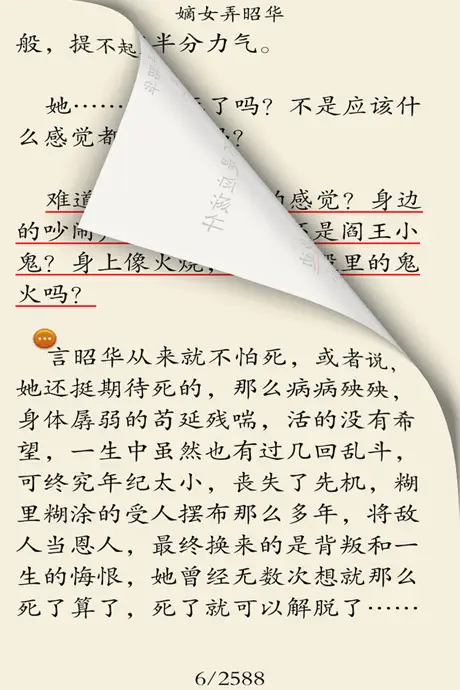 嫡女弄昭华
般，提不起 半分力气。
她…… 了吗？不是应该什
么感觉都 ？
难道 的感觉？身边
的吵闹 是阎王小
鬼？身上像火烧， 里的鬼
火吗？
言昭华从来就不怕死，或者说，
她还挺期待死的，那么病病殃殃，
身体孱弱的苟延残喘，活的没有希
望，一生中虽然也有过几回乱斗，
可终究年纪太小，丧失了先机，糊
里糊涂的受人摆布那么多年，将敌
人当恩人，最终换来的是背叛和一
生的悔恨，她曾经无数次想就那么
死了算了，死了就可以解脱了……
6/2588